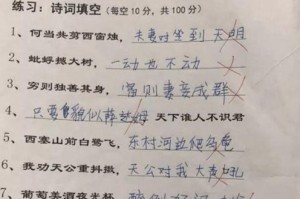 练习：诗词填空（每空10分，共100分）
1、何当共剪西窗烛，夫妻对坐到天明
2、蚍蜉撼大树，一动也不动
3、穷则独善其身，富则妻妾成群
4、只要貌似薛达姆 天下谁人不识君
5、西塞山前白鹭飞，东村河边爬乌龟
6、我劝天公重抖擞，天公对我大声吼
7、葡萄美酒夜光杯